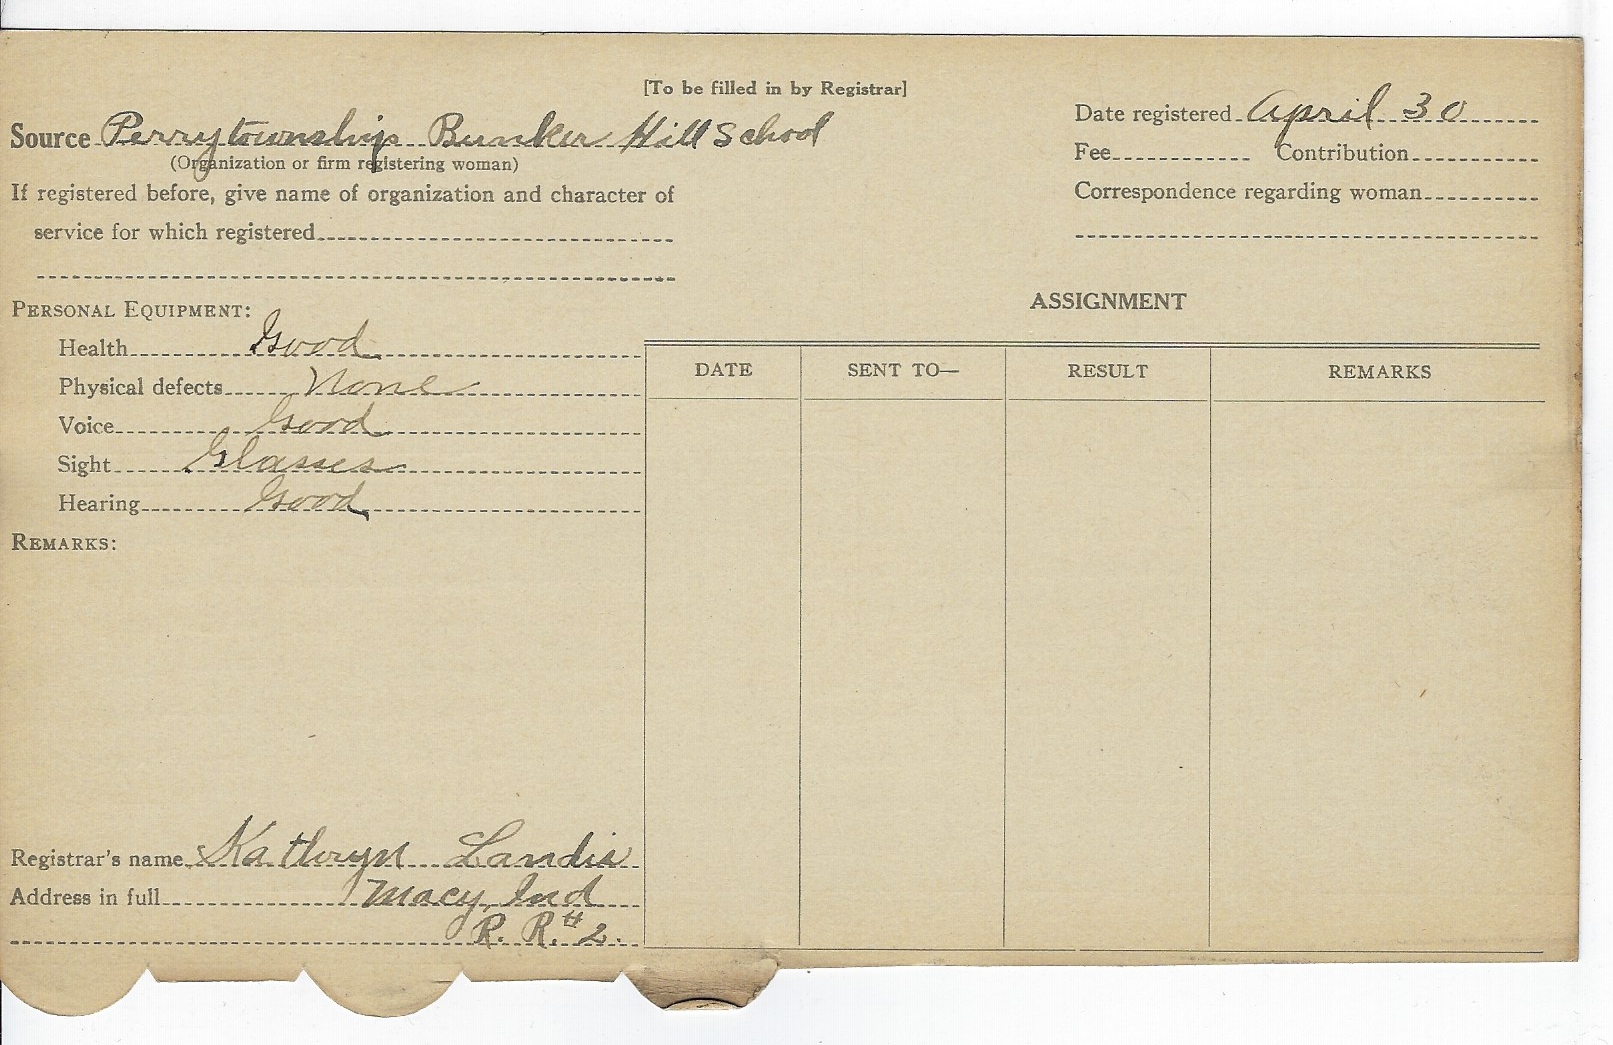 [To be filled in by Registrar]
Source Perrytownship Bunker Hill School
(Organization or firm registering woman)
If registered before, give name of organization and character of
service for which registered
Date registered April 30
Fee Contribution
Correspondence regarding woman
PERSONAL EQUIPMENT:
Health Good
Physical defects None
Voice Good
Sight Glasses
Hearing Good
REMARKS:
Registrar's name Kathryn Landis
Address in full Macy, Ind
R. R. # 2.
ASSIGNMENT
DATE SENT TO— RESULT REMARKS